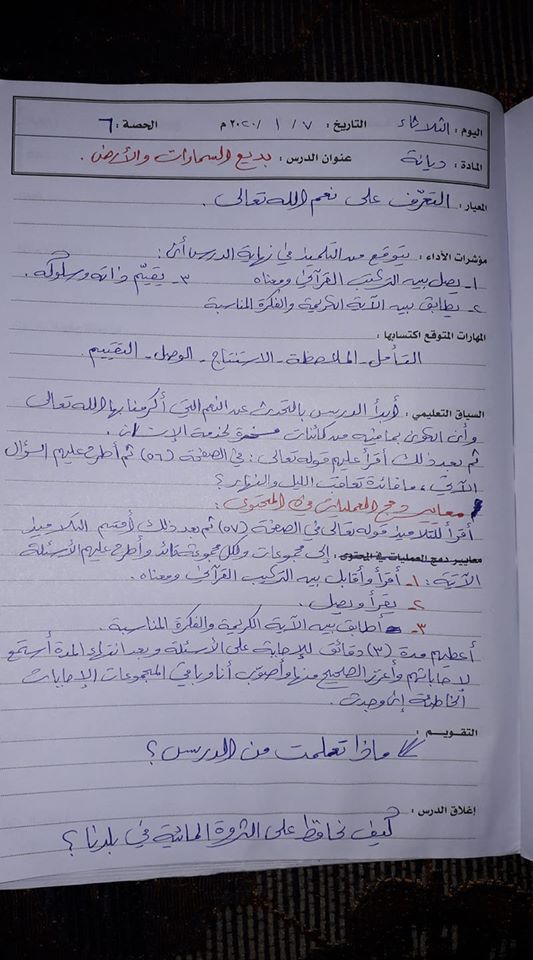 اليوم : الثلاثاء التاريخ : ٧ / ١ / ٢٠٢٠ م الحصة : ٦
المادة : ديانة عنوان الدرس : بديع السماوات والأرض .
المعيار : التعرّف على نعم الله تعالى .
مؤشرات الأداء : يتوقع من التلميذ في نهاية الدرس أن :
١- يصل بين التركيب القرآني ومعناه ٣- يقيّم ذاته وسلوكه .
٢- يطابق بين الآية الكريمة والفكرة المناسبة
المهارات المتوقع اكتسابها :
التأمل - الملاحظة - الاستنتاج - الوصل - التقييم .
السياق التعليمي : أبدأ الدرس بالتحدث عن النعم التي أكرمنا بها الله تعالى
وأن الكون بما فيه من كائنات مسخرة لخدمة الإنسان .
ثم بعد ذلك أقرأ عليهم قوله تعالى : في الصفحة (٥٦) ثم أطرح عليهم السؤال
الآتي ، ما فائدة تعاقب الليل والنهار ؟
معايير دمج العمليات في المحتوى :
أقرأ للتلاميذ قوله تعالى في الصفحة (٥٧) ثم بعد ذلك أقسم التلاميذ
معايير دمج العمليات في المحتوى : إلى مجموعات ولكل مجموعة قائد وأطرح عليهم الأسئلة
الآتية : ١- أقرأ وأقابل بين التركيب القرآني ومعناه .
٢- يقرأ ويصل .
٣- أطابق بين الآية الكريمة والفكرة المناسبة .
أعطيهم مدة (٣) دقائق للإجابة على الأسئلة وبعد انتهاء المدة أستمع
لإجاباتهم وأعزز الصحيح منها وأصوّب أنا وباقي المجموعات الإجابات
الخاطئة إن وجدت .
التقويم :
ماذا تعلمت من الدرس ؟
إغلاق الدرس :
كيف نحافظ على الثروة المائية في بلدنا ؟